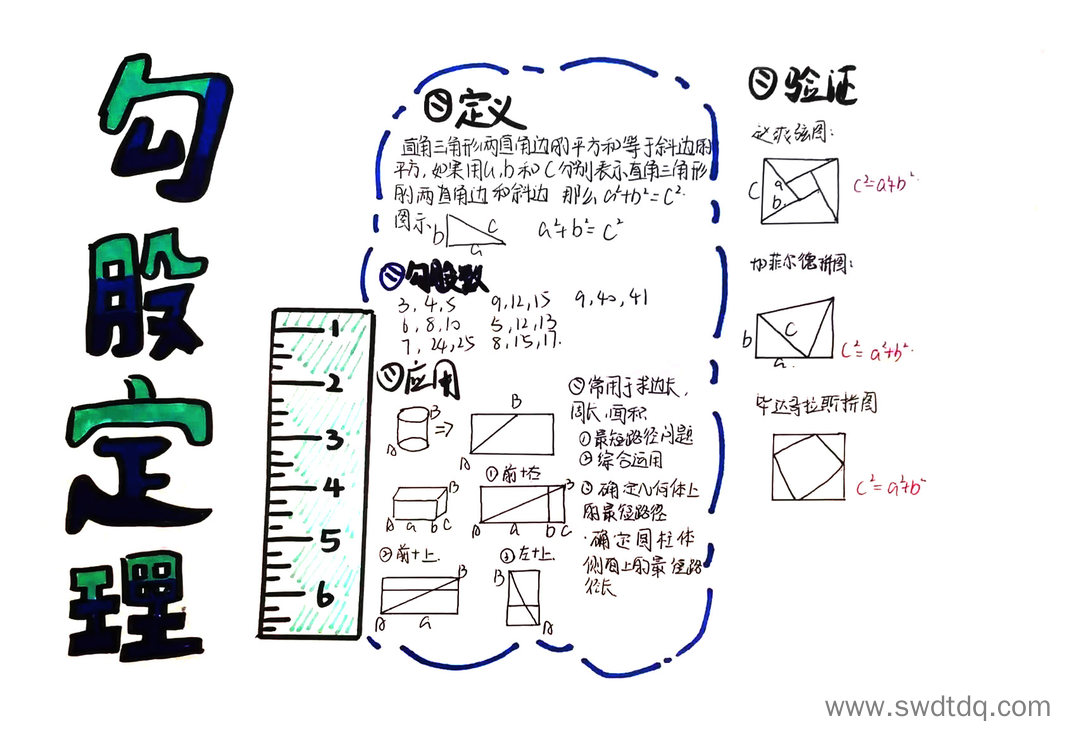 勾股定理
1
2
3
4
5
6
定义
直角三角形两直角边的平方和等于斜边的
平方，如果用a,b和c分别表示直角三角形
的两直角边和斜边 那么a²+b²=c²
图示 b c a a²+b²=c²
勾股数
3,4,5 9,12,15 9,40,41
6,8,10 5,12,13
7,24,25 8,15,17.
应用
B
A
B
A
①前+右
B
A a b c
B
A a b c
②前+上.
B
A a
③左+上.
B
A
常用于求边长，
周长,面积
①最短路径问题
②综合运用
确定几何体上
的最短路径
·确定圆柱体
侧面上的最短路
径长
验证
赵爽弦图：
c a b c²=a²+b²
加菲尔德拼图：
b c a c²=a²+b²
毕达哥拉斯拼图
c²=a²+b²
www.swdtdq.com